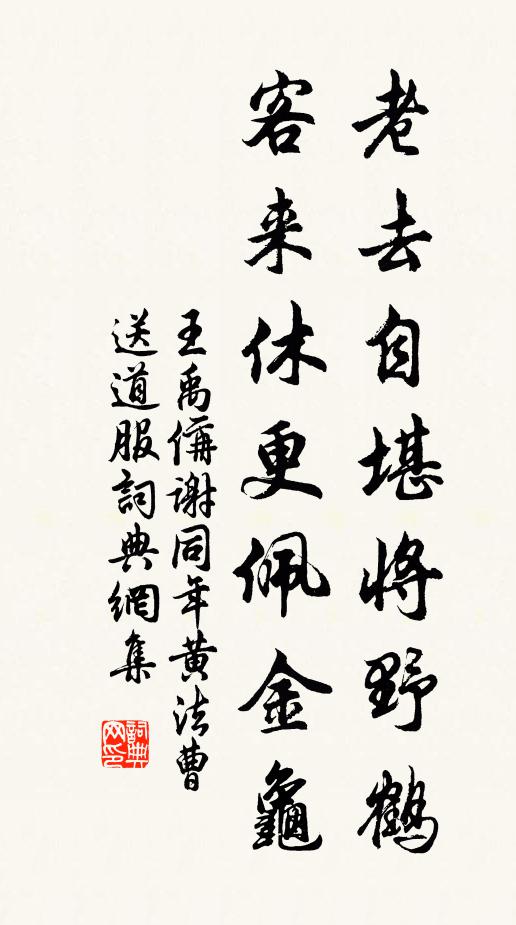 老去自堪將野鶴
客来休更佩金龜
王禹偁謝同年黄法曹
送道服詞典網集
詞典網印